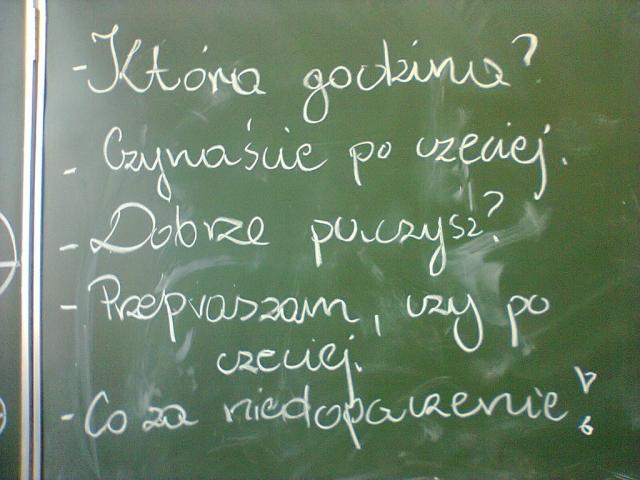 - Która godzina?
- Czynaście po czeciej.
- Dobrze paczysz?
- Przepraszam, czy po
czeciej.
- Co za niedopaczenie!